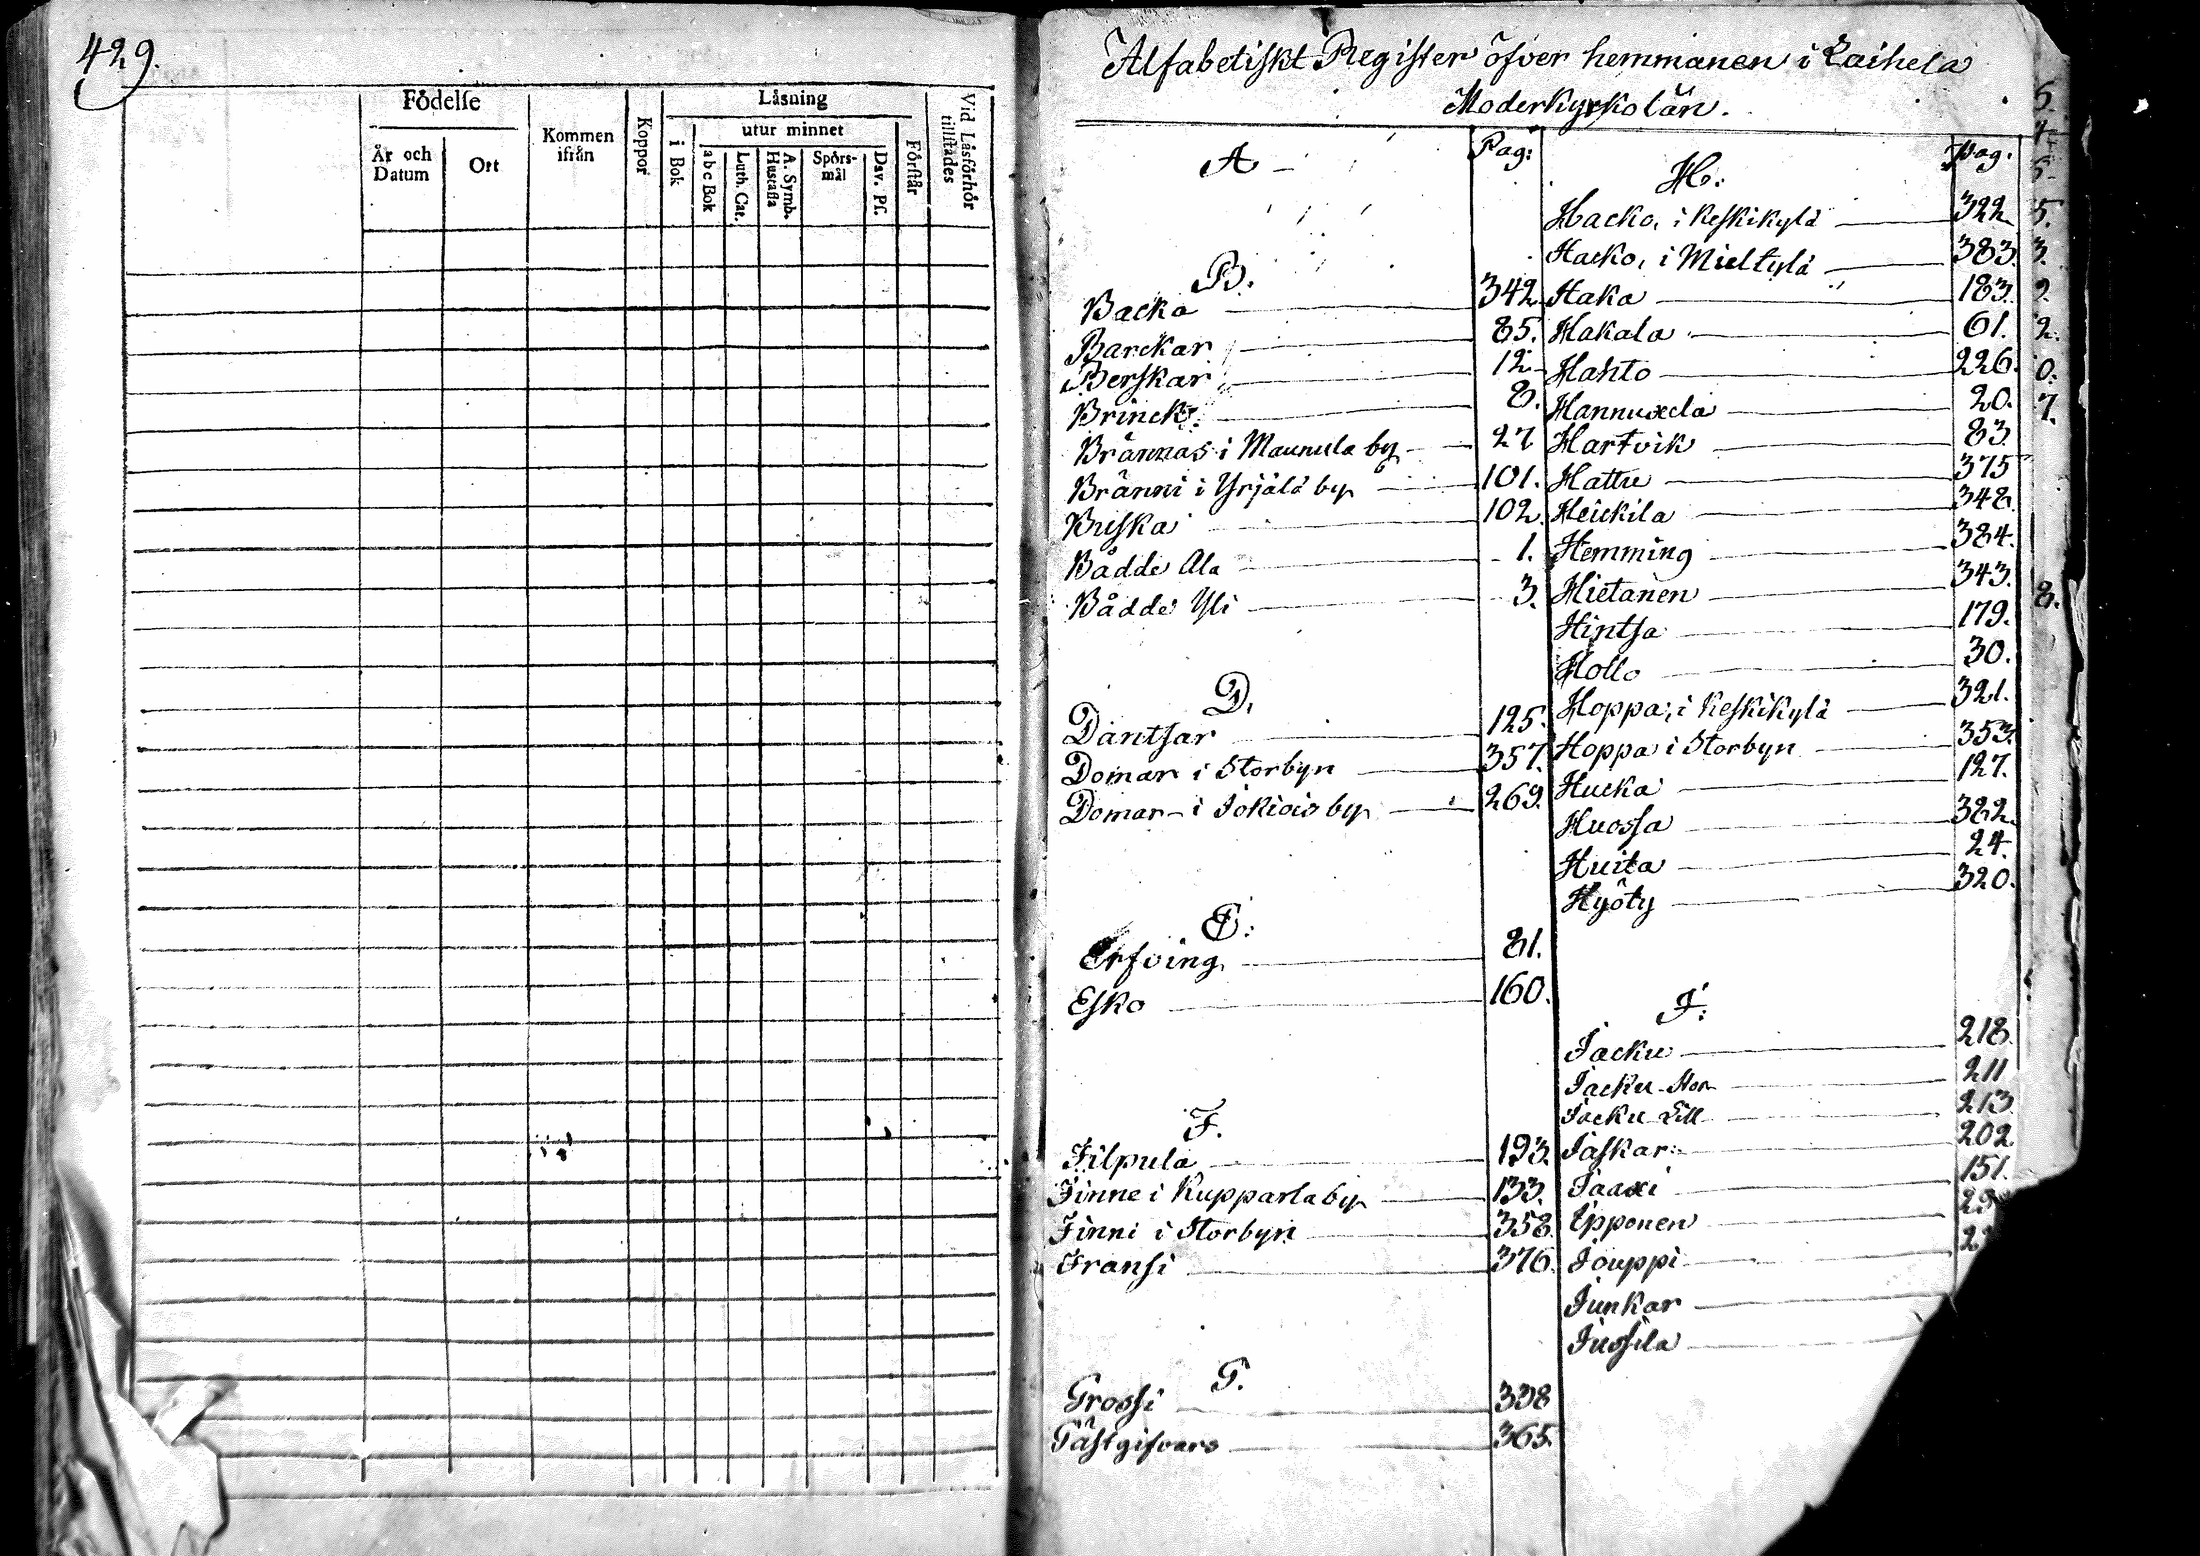 429.
Födelse
År och Datum
Ort
Kommen ifrån
Koppor
Läsning
i Bok
utur minnet
a b c Bok
Luth. Cat.
A. Symb. Hustafla
Spörs-mål
Dav. Ps.
Förstår
Vid Läsförhör tillstädes
Alfabetiskt Register öfver hemmanen i Laihela
Moderkyrkolän.
A
Pag:
B.
Backa 342
Barckar 85.
Berskar 12
Brinck 8.
Brännas i Maunula by 27
Bränni i Yrjälä by 101.
Buska 102.
Bådde Ala 1.
Bådde Yli 3.
D.
Dantsar 125.
Domar i Storbyn 357.
Domar i Jokiois by 269.
E:
Erfving 81.
Esko 160.
F.
Filpula 193.
Finne i Kupparla by 133.
Finni i Storbyn 358.
Fransi 376.
G.
Grossi 338
Gästgifvars 365.
H:
Pag.
Hacko, i Keskikylä 322
Hacko, i Mieltylä 383.
Haka 183.
Hakala 61.
Hahto 226.
Hannuxela 20.
Hartvik 83.
Hattu 375
Heickila 348.
Hemming 384.
Hietanen 343.
Hintsa 179.
Hollo 30.
Hoppa, i Keskikylä 321.
Hoppa i Storbyn 353.
Hucka 127.
Huossa 322.
Huita 24.
Hyöty 320.
J:
Jacku 218.
Jacku Stor 211
Jacku Lill 213
Jaskar 202.
Jaaxi 151.
Ipponen
Jouppi
Junkar
Jussila
5.
3.
2.
0.
7.
8.